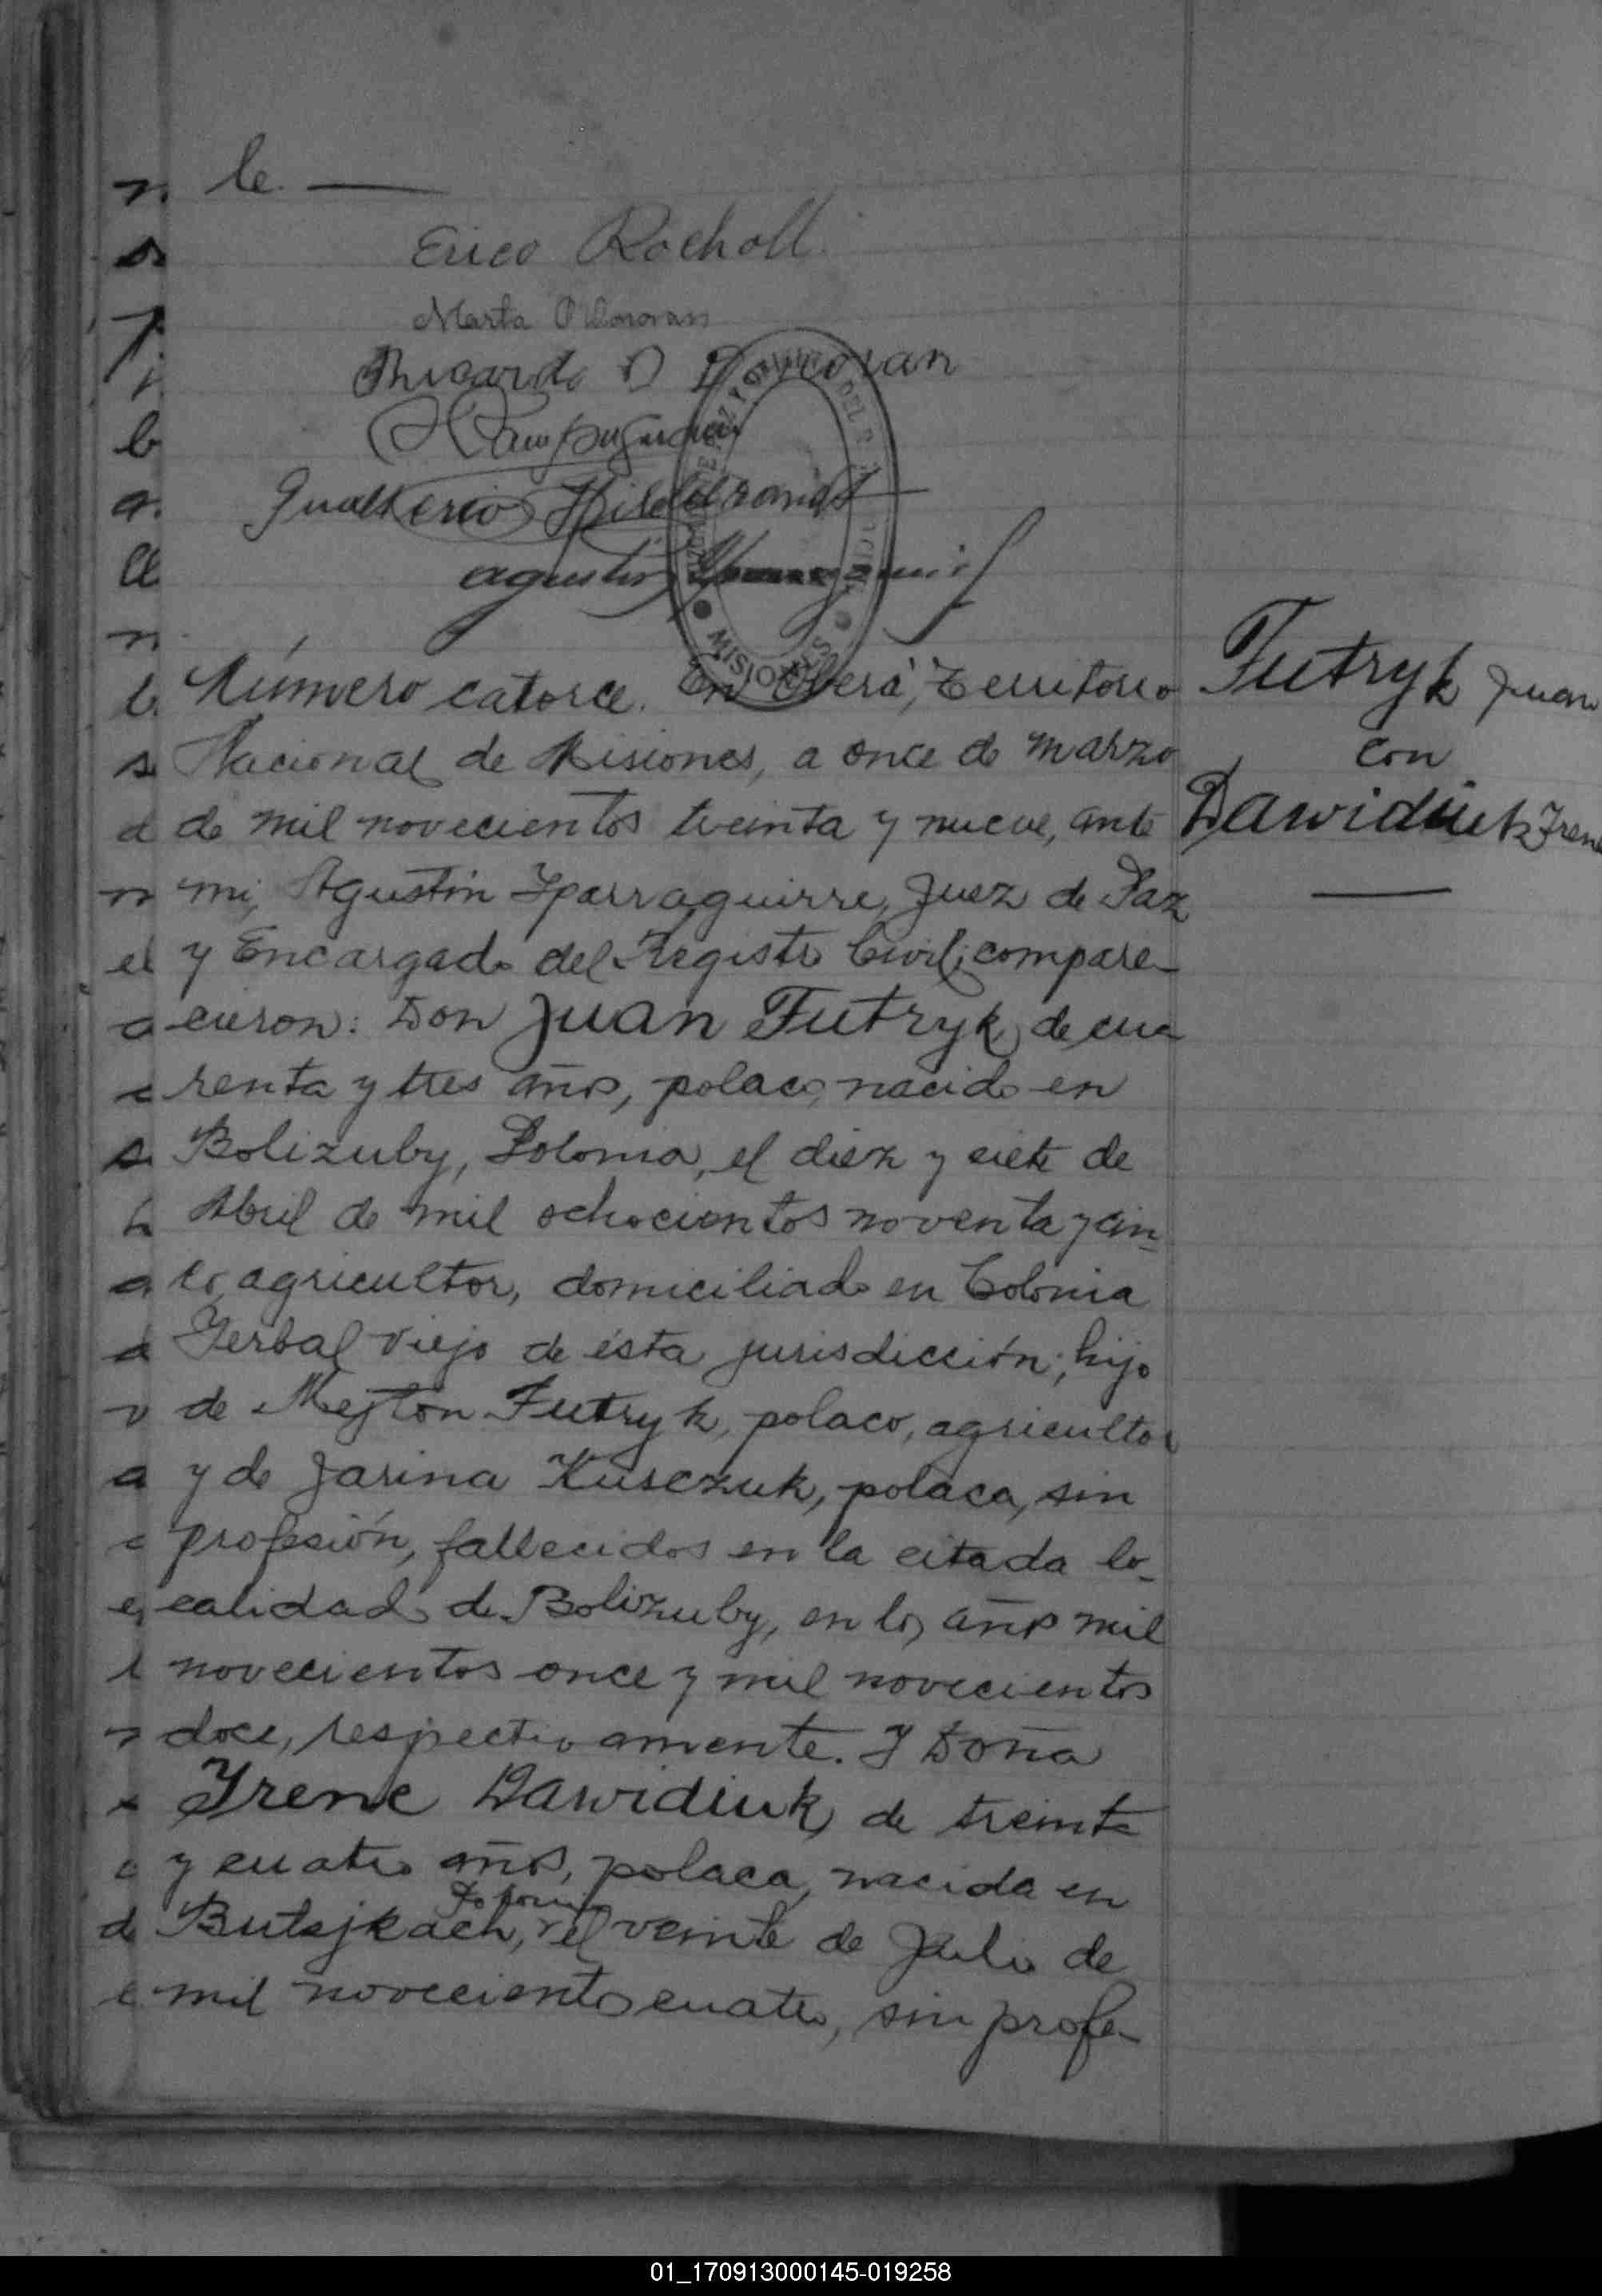 le. —
Erico Rocholl
Marta
Ricardo D Donovan
Gualterio Hildebrandt
Agustin
MISIONES
Número catorce. En Oberá, Territorio
Nacional de Misiones, a once de Marzo
de mil novecientos treinta y nueve, ante
mi, Agustín Yparraguirre, Juez de Paz
y Encargado del Registro Civil; compare-
cieron: Don Juan Futryk, de cua
renta y tres años, polaco, nacido en
Bolizuby, Polonia, el diez y siete de
Abril de mil ochocientos noventa y cin-
co, agricultor, domiciliado en Colonia
Yerbal Viejo de ésta jurisdicción; hijo
de Mejton Futryk, polaco, agricultor
y de Jarina Kusczuk, polaca, sin
profesión, fallecidos en la citada lo-
calidad de Bolizuby, en los años mil
novecientos once y mil novecientos
doce, respectivamente. Y Doña
Irene Dawidiuk, de treinta
y cuatro años, polaca, nacida en
Polonia
Butejkach, el veinte de Julio de
mil novecientos cuatro, sin profe-
Futryk Juan
con
Dawidiuk Irene
01_170913000145-019258